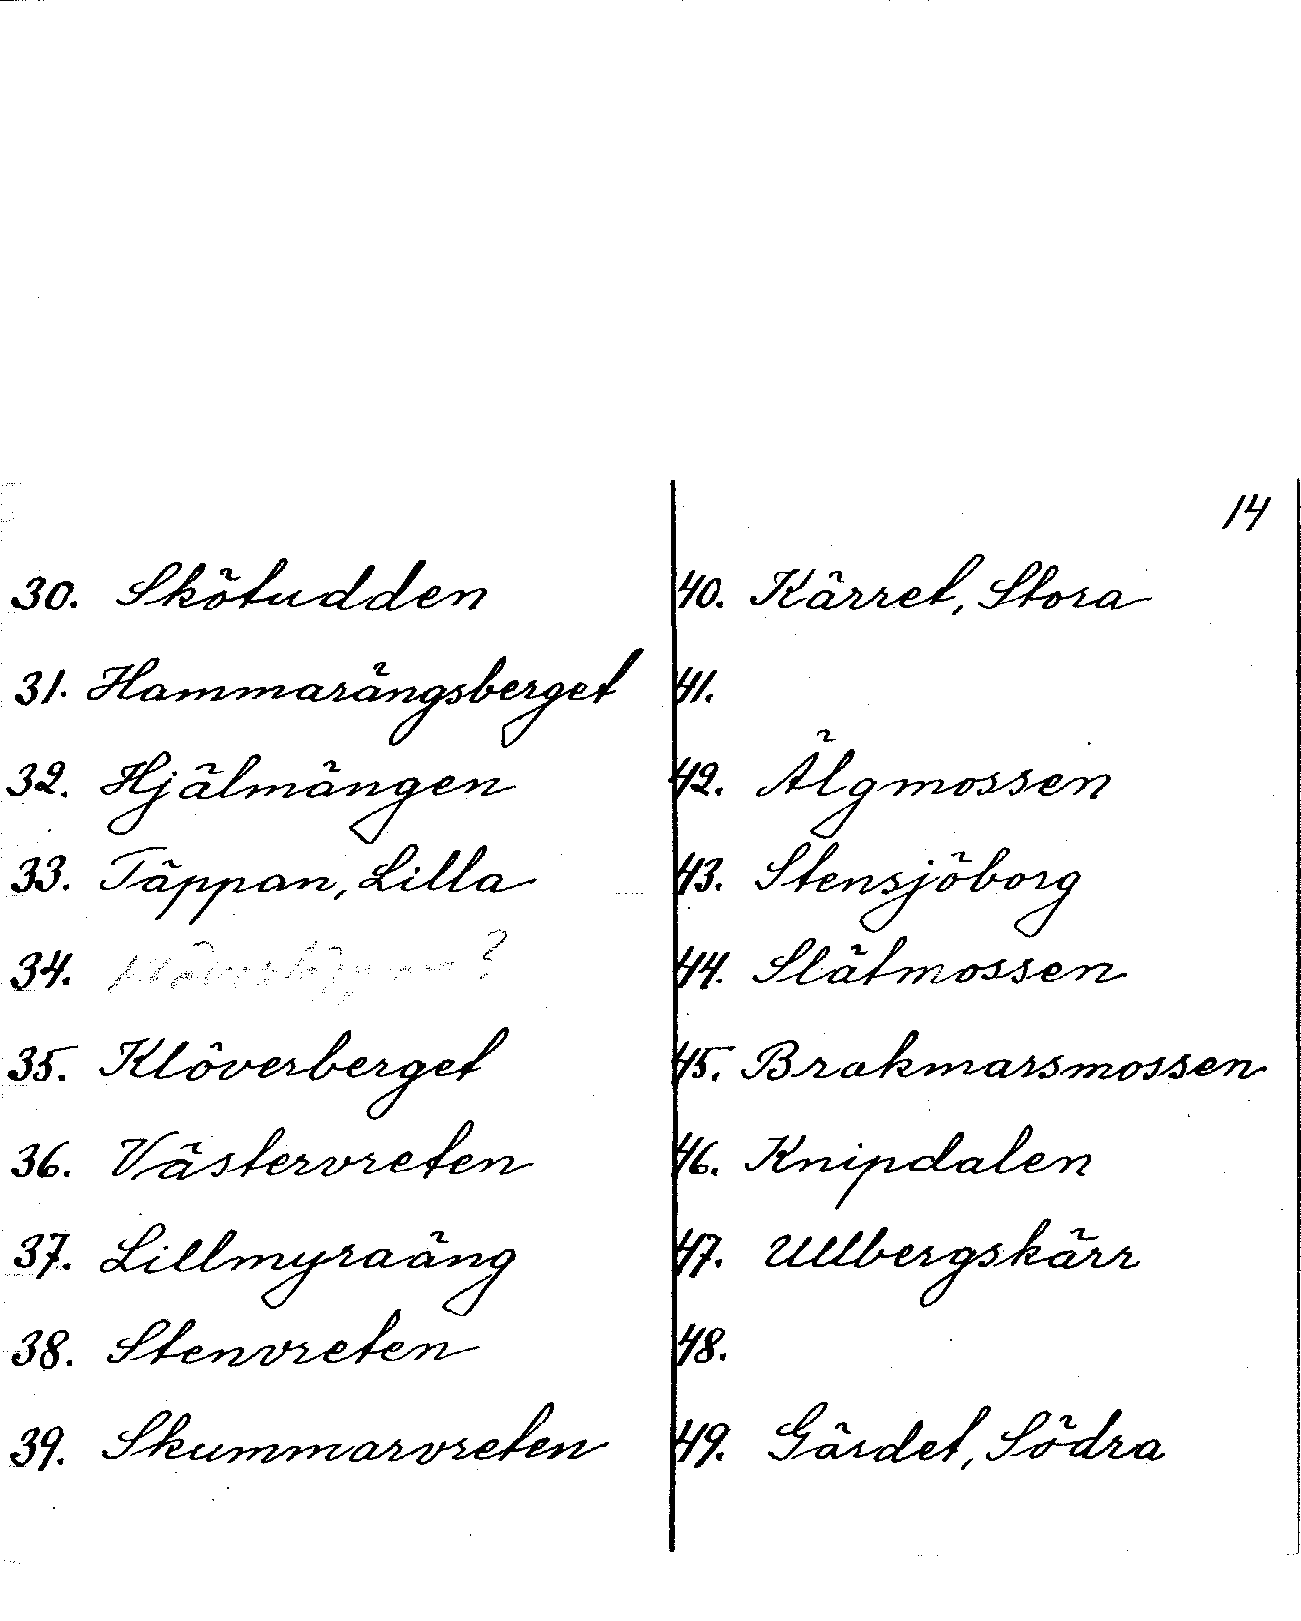 14
30. Skötudden
31. Hammarängsberget
32. Hjälmängen
33. Täppan, Lilla
34. ?
35. Klöverberget
36. Västervreten
37. Lillmyraäng
38. Stenvreten
39. Skummarvreten
40. Kärret, Stora
41.
42. Älgmossen
43. Stensjöborg
44. Slätmossen
45. Brakmarsmossen
46. Knipdalen
47. Ullbergskärr
48.
49. Gärdet, Södra